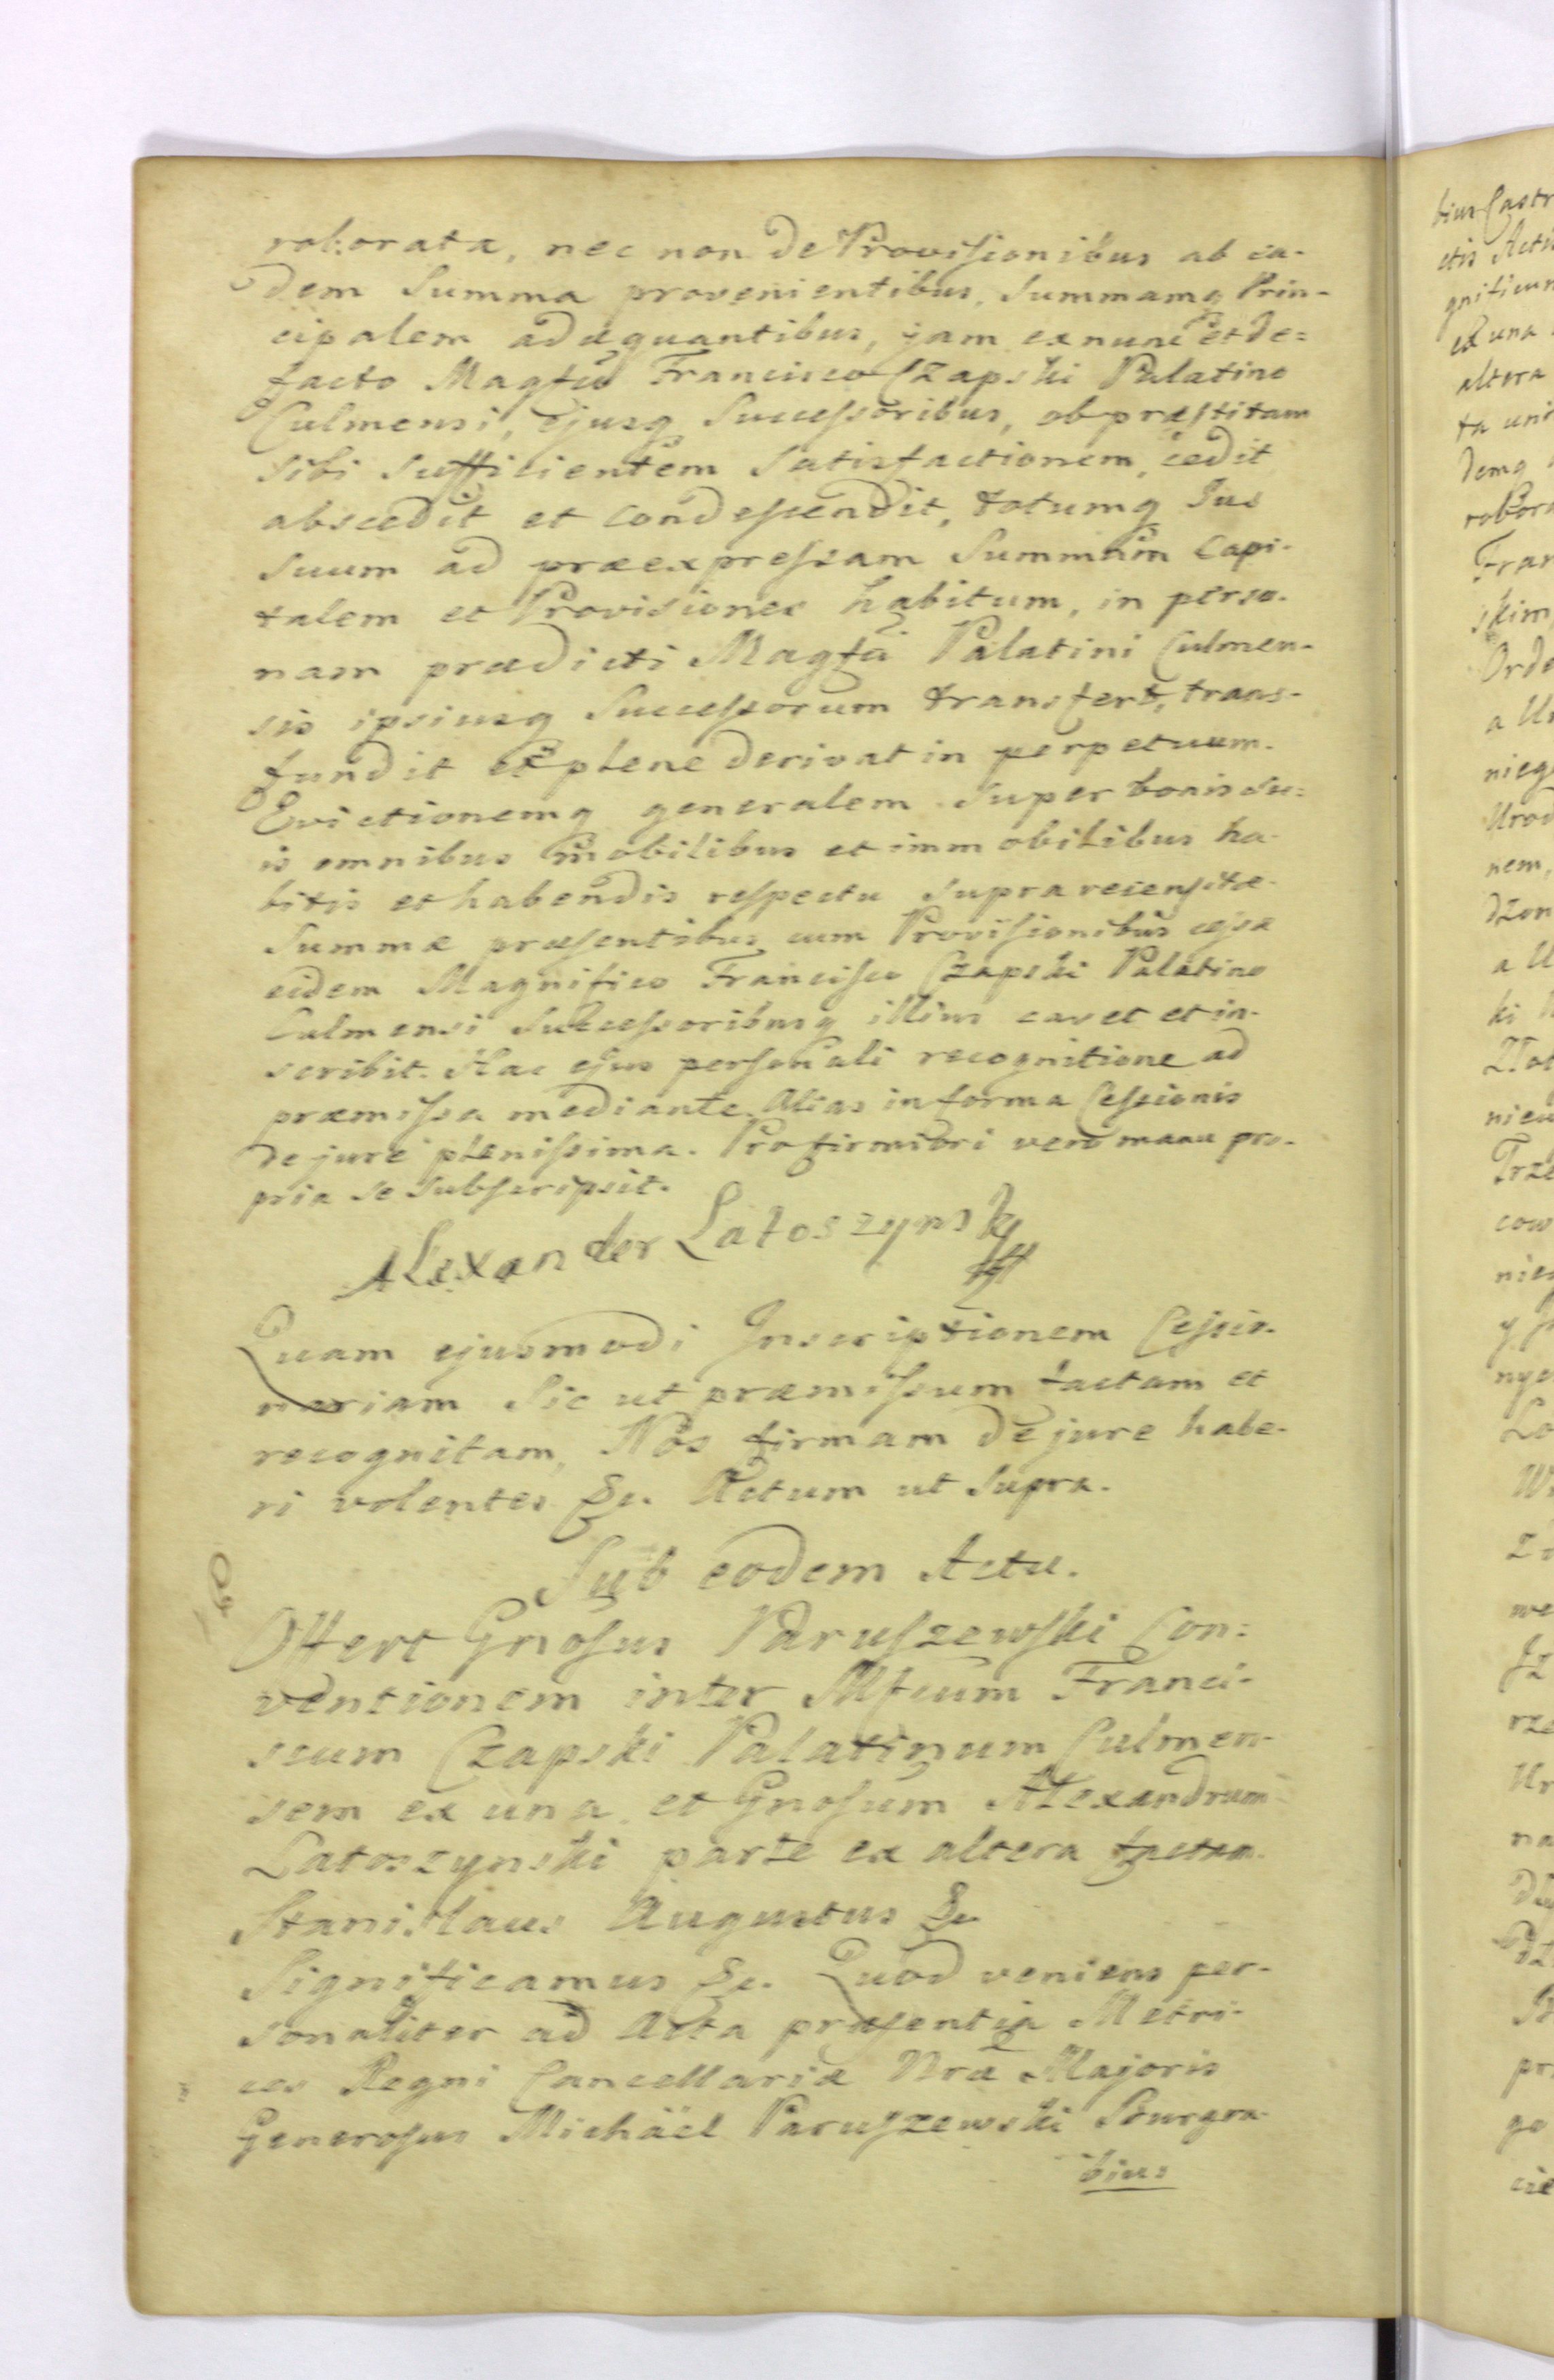 roborata, nec non de Provisionibus ab ea-
dem Summa provenientibus, Summamq Prin-
cipalem adæquantibus, jam ex nunc et de=
facto Magfco Francisco Czapski Palatino
Culmensi, ejusq Successoribus, ob præstitam
sibi sufficientem satisfactionem, cedit
abscedit et condescendit, totumq Jus
suum ad præexpressam Summam Capi-
talem et Provisiones habitum, in perso-
nam prædicti Magfci Palatini Culmen-
sis ipsiusq Successorum transfert, trans-
fundit et plene derivat in perpetuum.
Evictionemq generalem super bonis su=
is omnibus mobilibus et immobilibus ha-
bitis et habendis respectu supra recensitæ
Summæ præsentibus cum Provisionibus cessæ
eidem Magnifico Francisco Czapski Palatino
Culmensi Successoribusq illius cavet et in-
scribit. Hac ejus personali recognitione ad
præmissa mediante. Alias in forma Cessionis
de jure plenissima. Pro firmiori vero manu pro-
pria se subscripsit.
Alexander Latoszynski
Quam ejusmodi Inscriptionem Cessio-
nariam sic ut præmissum factam et
recognitam, Nos firmam de jure habe-
ri volentes &c. Actum ut supra.
Sub eodem Actu.
Offert Gnosus Paruszewski Con=
ventionem inter Mfcum Franci-
scum Czapski Palatinum Culmen-
sem ex una et Gnosum Alexandrum
Latoszynski parte ex altera factam.
Stanislaus Augustus &c.
Significamus &c. Quod veniens per-
sonaliter ad Acta præsentia Metri-
ces Regni Cancellariæ Nræ Majoris
Generosus Michäel Paruszewski Burgra-
bius